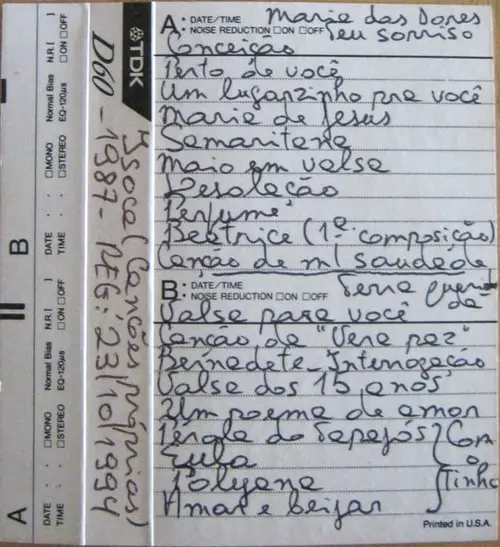 A • DATE/TIME Maria das Dores
• NOISE REDUCTION □ON □OFF Teu sorriso
Conceição
Perto de você
Um lugarzinho pra você
Maria de Jesus
Samaritana
Maio em valsa
Desolação
Perfume
Beatrice (1ª composição)
Canção de m/ saudade
B • DATE/TIME Terra queri
• NOISE REDUCTION □ON □OFF da
Valsa para você
Canção de "Vera paz"
Bernadete - Interrogação
Valsa dos 15 anos
Um poema de amor
Pérola do Tapajós } Com
Eula o
Polyana Tinho
Amar e beijar
Printed in U.S.A.
TDK
Isoca (Canções próprias)
D60 - 1987 - REG: 23/10/1994
A
DATE : : □MONO Normal Bias N.R.[ ]
TIME : □STEREO EQ-120µs □ON □OFF
B
DATE : : □MONO Normal Bias N.R.[ ]
TIME : □STEREO EQ-120µs □ON □OFF